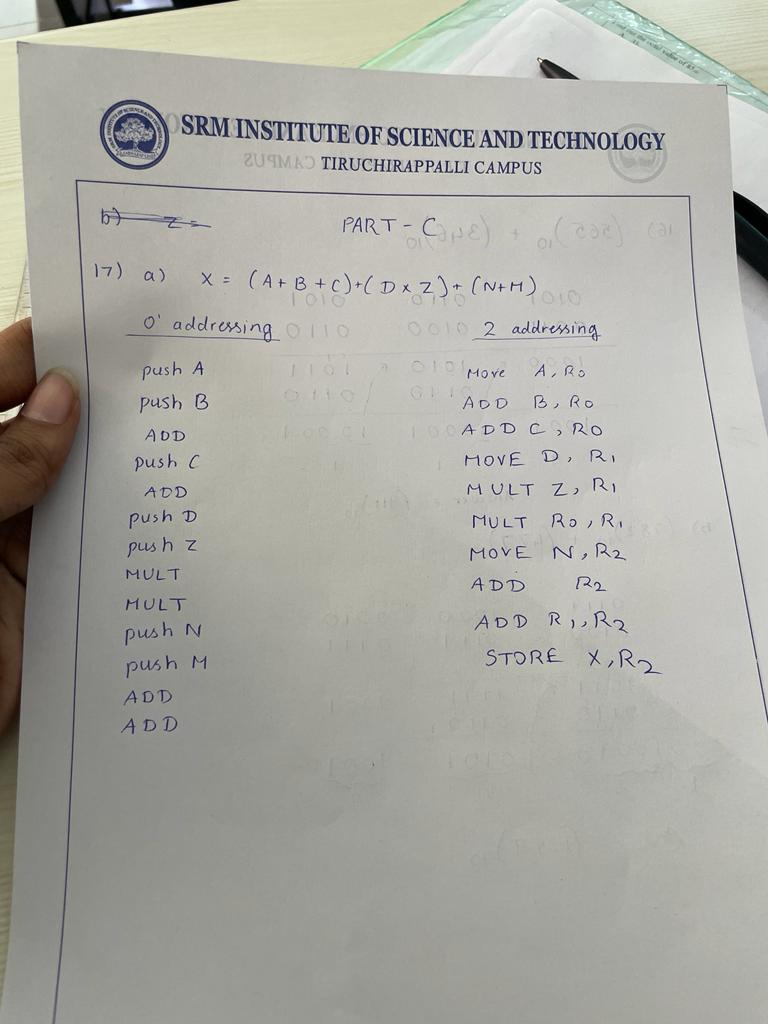 SRM INSTITUTE OF SCIENCE AND TECHNOLOGY
TIRUCHIRAPPALLI CAMPUS
b) Z =
PART - C
17) a) X = (A + B + C) + (D × Z) + (N+M)
0' addressing
push A
push B
ADD
push C
ADD
push D
push Z
MULT
MULT
push N
push M
ADD
ADD
2 addressing
Move A, R0
ADD B, R0
ADD C, R0
MOVE D, R1
MULT Z, R1
MULT R0, R1
MOVE N, R2
ADD R2
ADD R1, R2
STORE X, R2